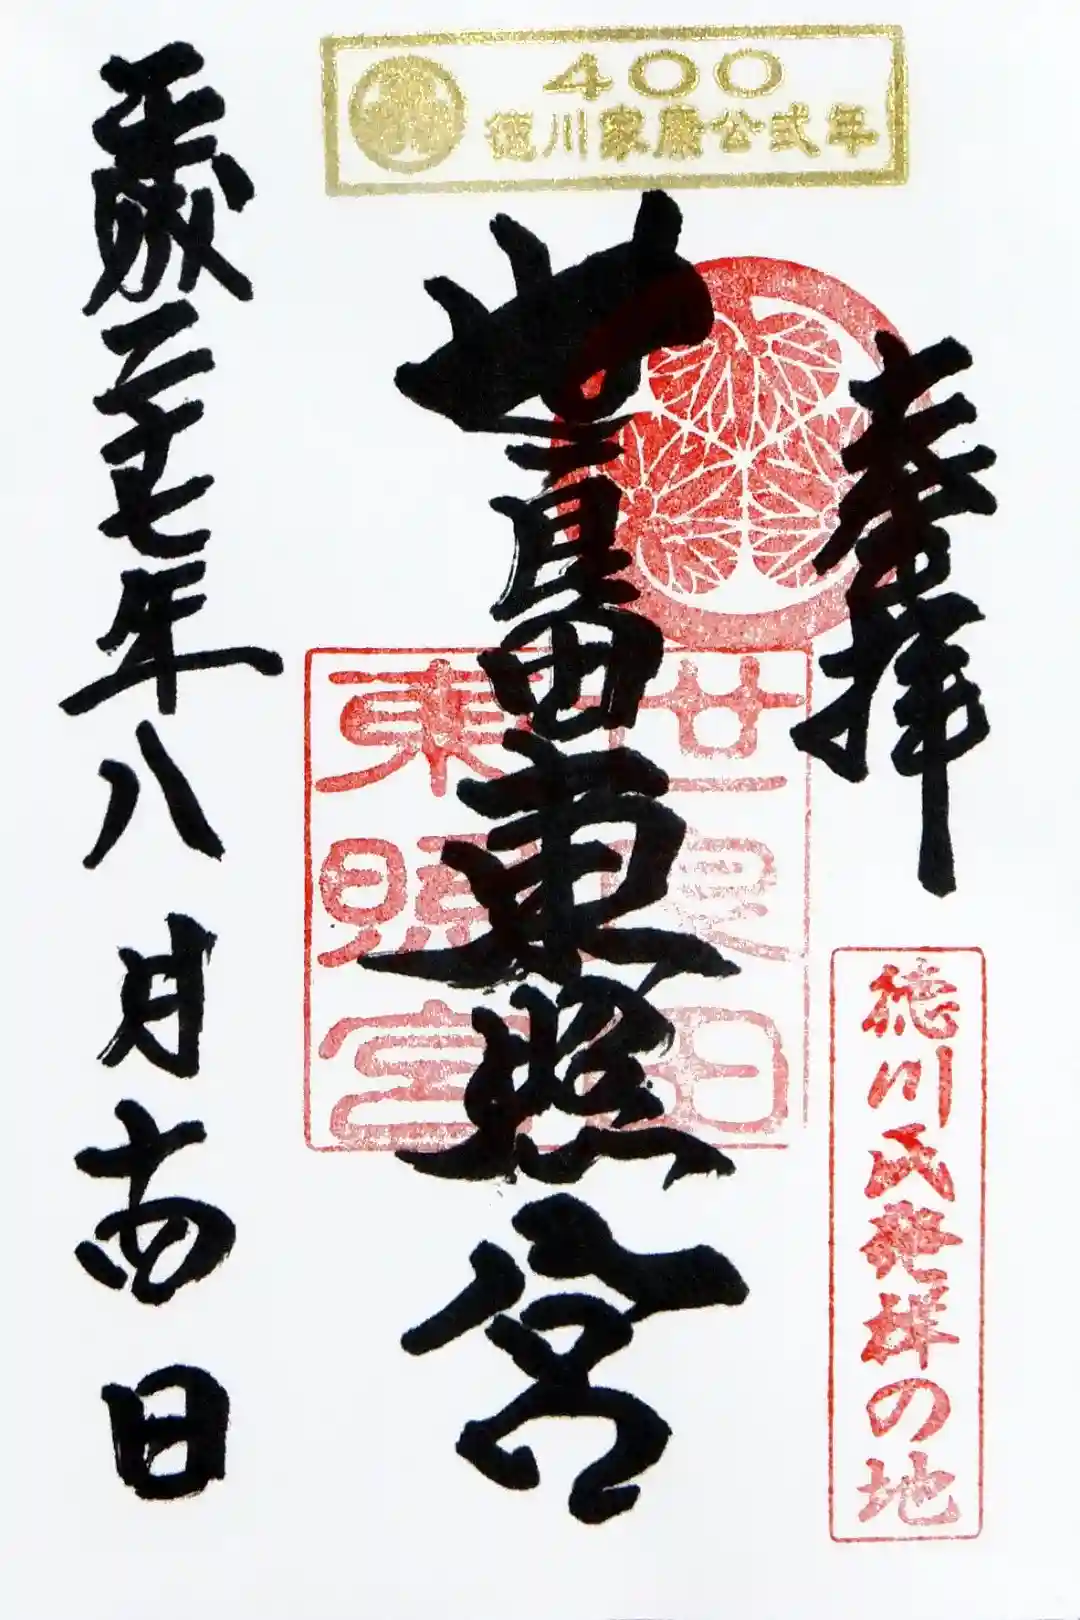 400
徳川家康公式年
奉拝
徳川氏発祥の地
世良田東照宮
世良田
東照宮
平成二十七年八月十四日